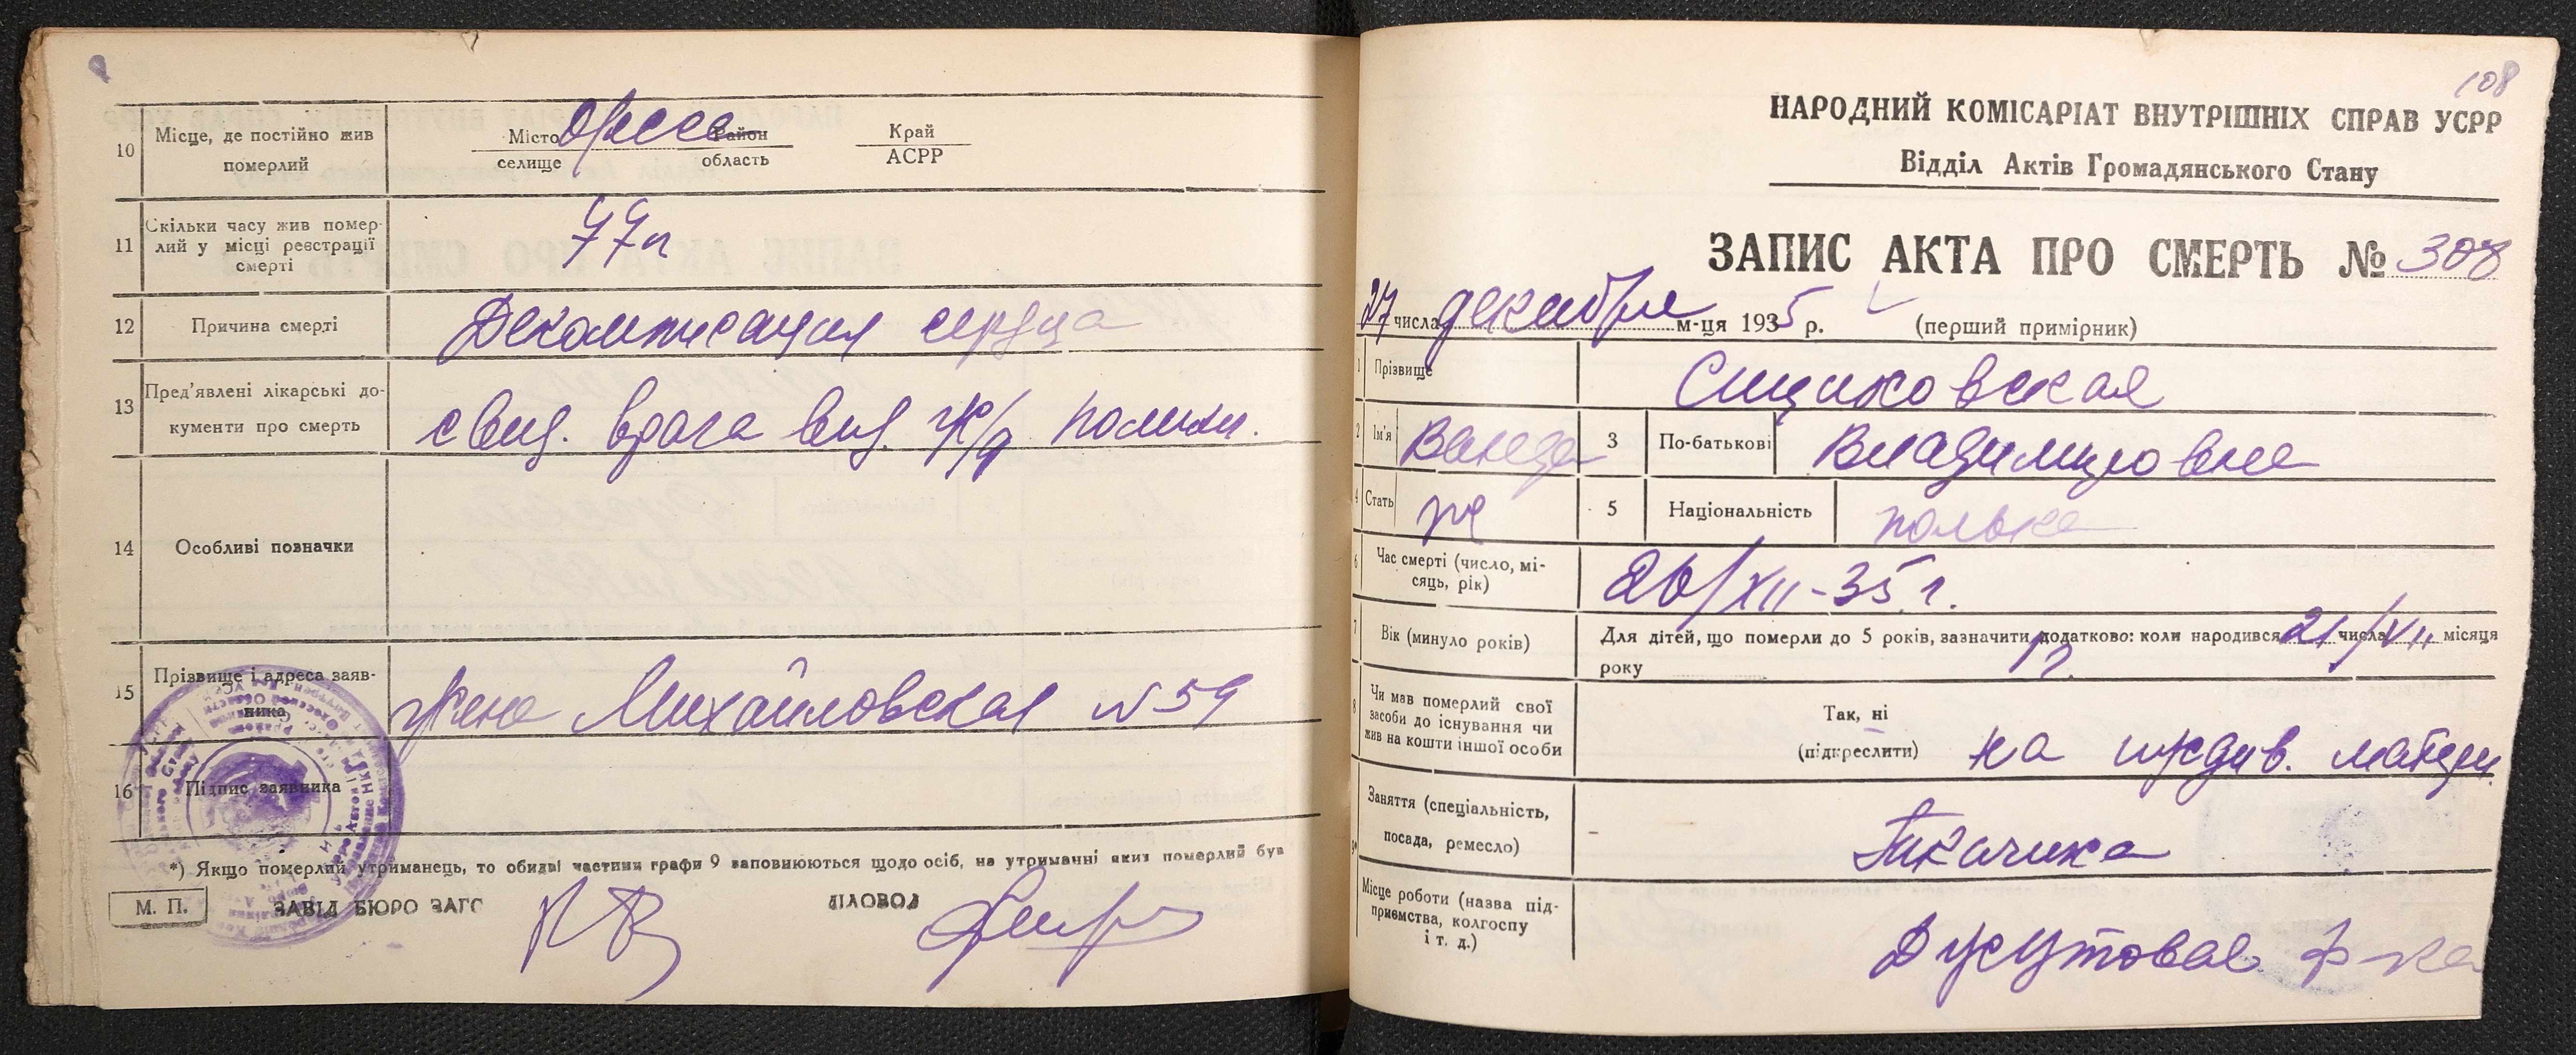 10 Місце, де постійно жив померлий
Місто Одесса Район Край
селище область АСРР
11 Скільки часу жив помер-
лий у місці реєстрації
смерті
12 Причина смерті Декомпенсация сердца
13 Пред'явлені лікарські до-
кументи про смерть
свид. врача выд. ж/д поликл.
14 Особливі позначки
15 Прізвище і адреса заяв-
ника
Михайловская № 59
16 Підпис заявника
*) Якщо померлий утриманець, то обидві частини графи 9 заповнюються щодо осіб, на утриманні яких померлий був
М. П. ЗАВІД БЮРО ЗАГС ДІЛОВОД
108
НАРОДНИЙ КОМІСАРІАТ ВНУТРІШНІХ СПРАВ УСРР
Відділ Актів Громадянського Стану
ЗАПИС АКТА ПРО СМЕРТЬ № 308
27 числа декабря м-ця 1935 р. (перший примірник)
1 Прізвище
2 Ім'я Ванда 3 По-батькові Владимировна
4 Стать ж 5 Національність полька
6 Час смерті (число, мі-
сяць, рік)
26/XII-35 г.
7 Вік (минуло років)
Для дітей, що померли до 5 років, зазначити додатково: коли народився 21 числа/XII місяця
року
8 Чи мав померлий свої
засоби до існування чи
жив на кошти іншої особи
Так, ні
(підкреслити) на иждив. матери
9* Заняття (спеціальність,
посада, ремесло)
Ткачиха
Місце роботи (назва під-
приємства, колгоспу
і т. д.)
Джутовая ф-ка